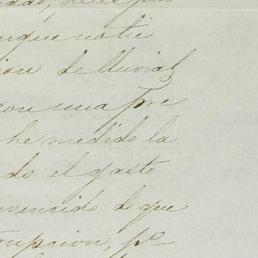 unque no tie
ion de lluvial
con una pre
he medido la
do el gasto
nvencido de que
rupcion, p.º